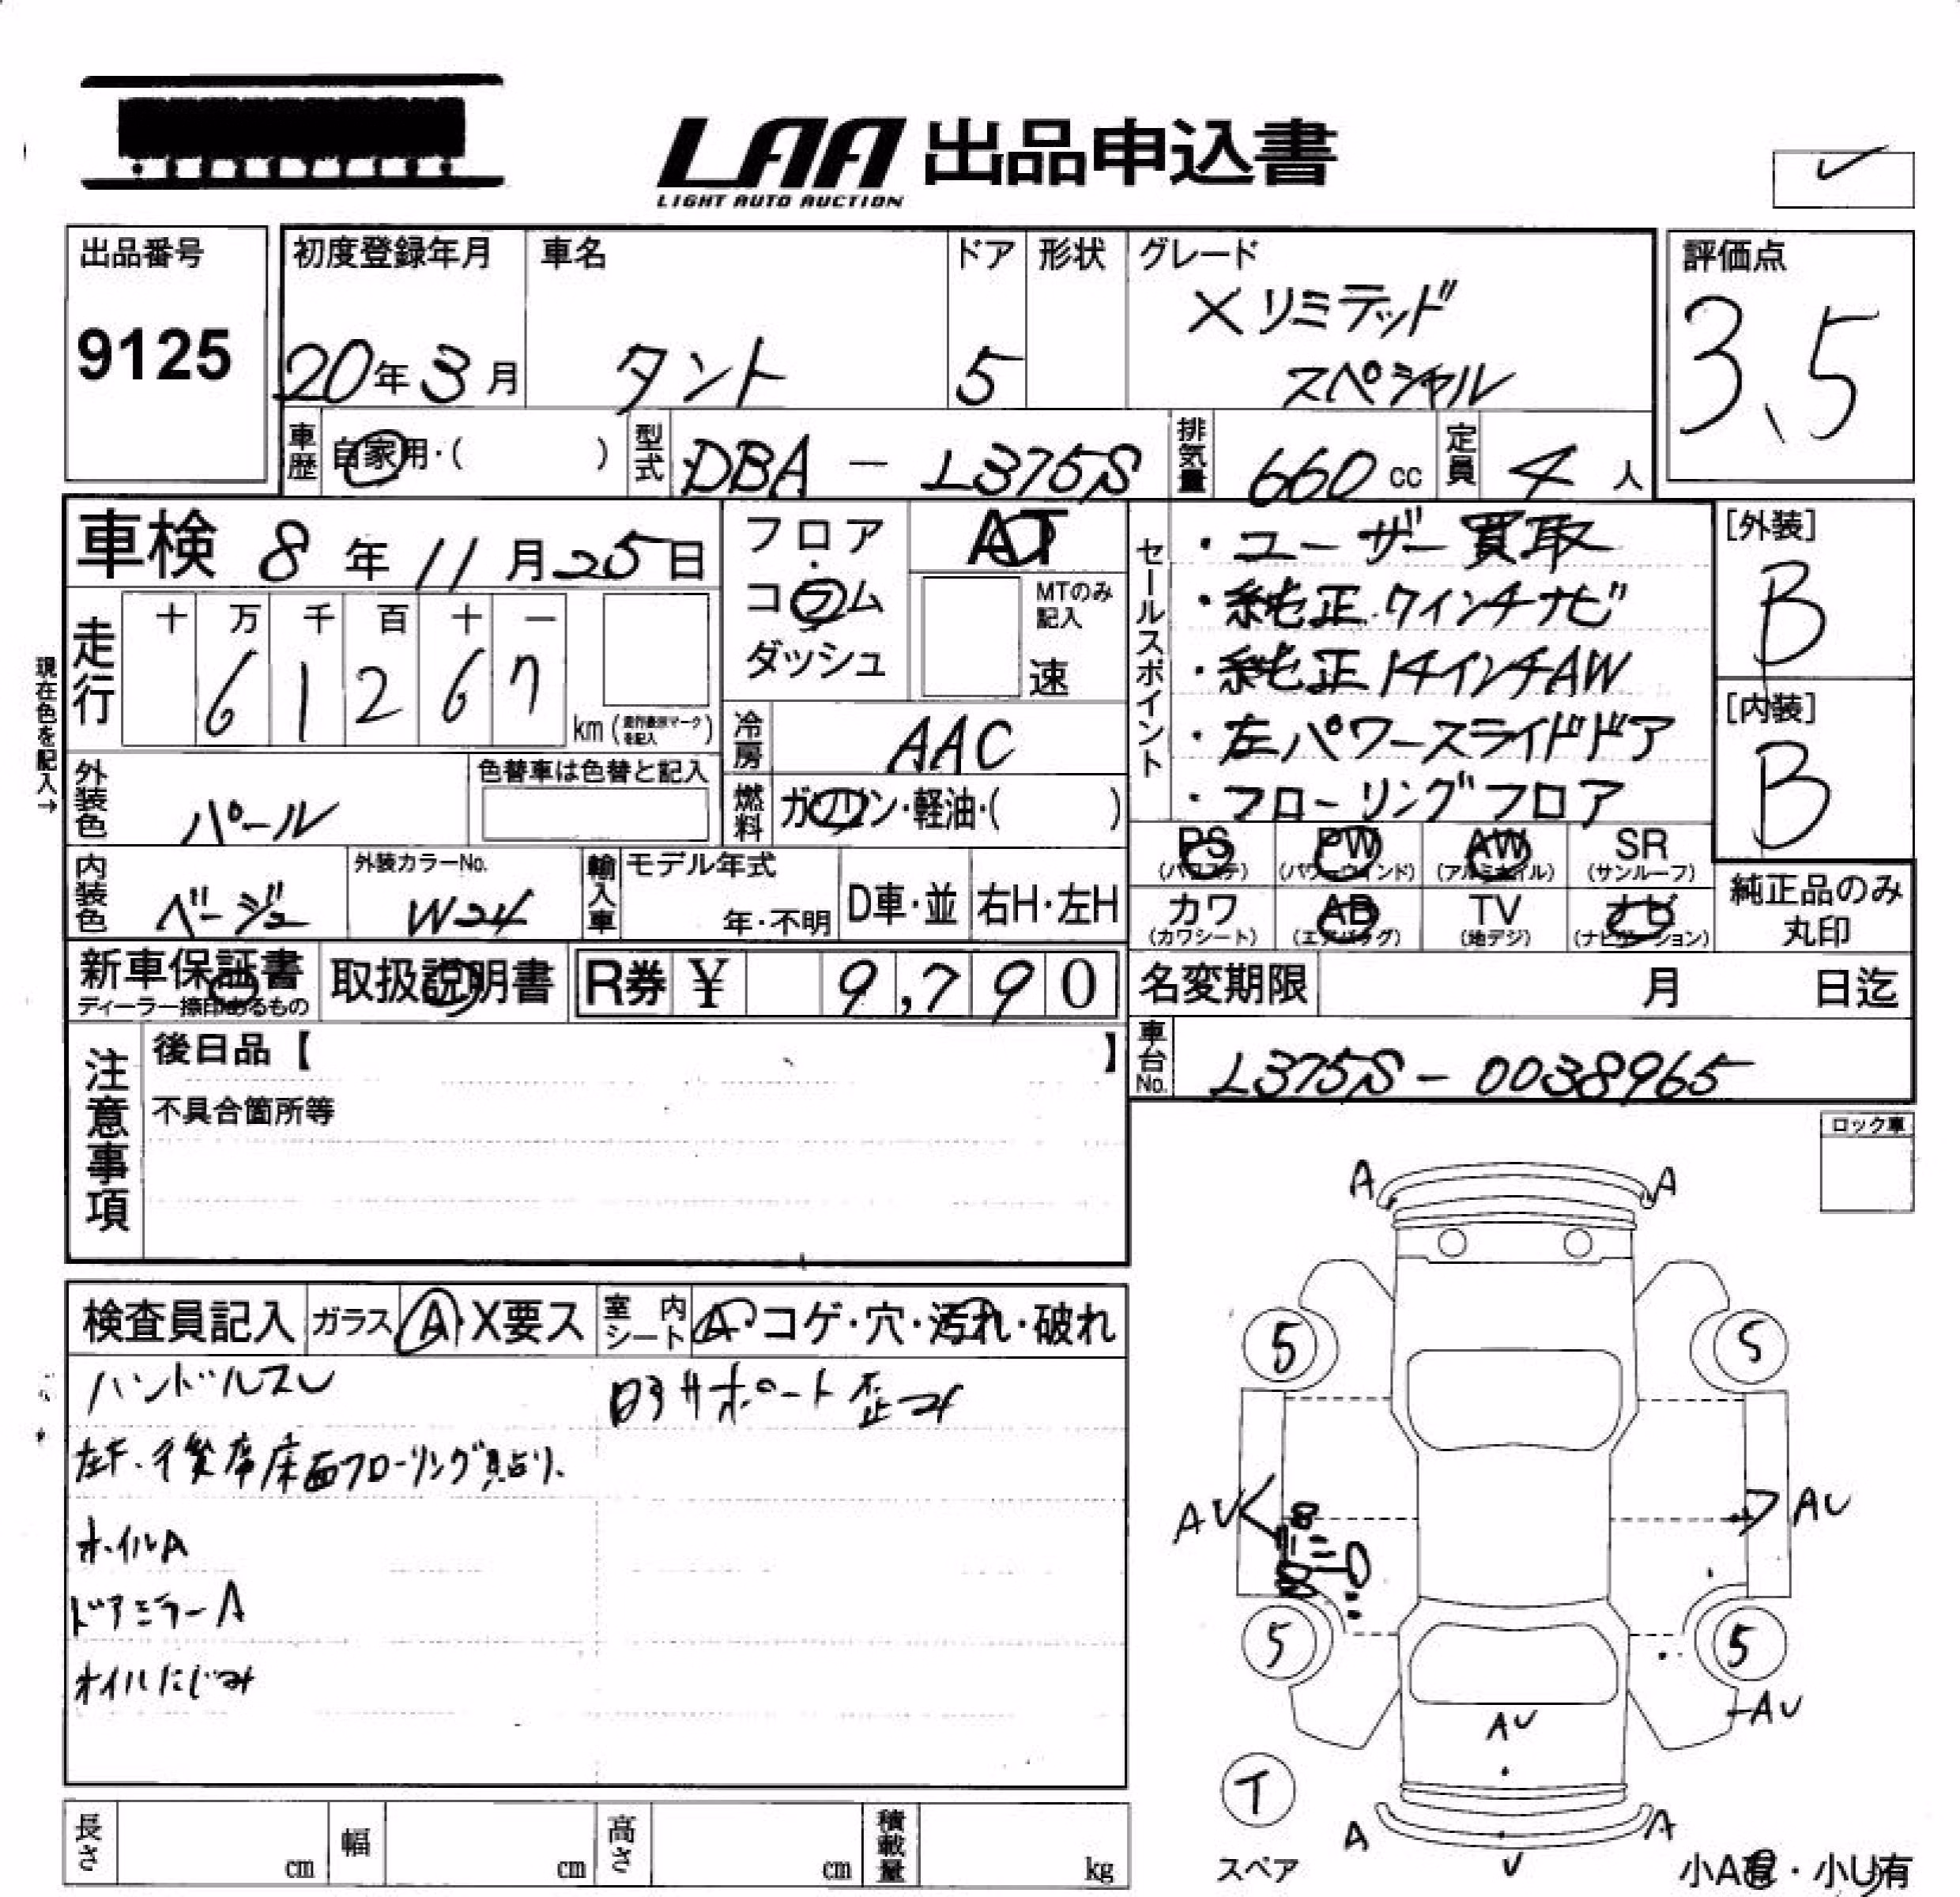 LAA 出品申込書
LIGHT AUTO AUCTION
出品番号
9125
初度登録年月
20年3月
車名
タント
ドア
5
形状
グレード
Xリミテッド
スペシャル
評価点
3.5
車歴
自家用・( )
型式
DBA - L375S
排気量
660 cc
定員
4 人
車検 8年11月25日
フロア
・
コラム
ダッシュ
AT
MTのみ
記入
速
セールスポイント
・ユーザー買取
・純正7インチナビ
・純正14インチAW
・左パワースライドドア
・フローリングフロア
[外装]
B
[内装]
B
現在色を記入→
走行
十 万 千 百 十 一
6 1 2 6 7
km (走行表示マークを記入)
冷房
AAC
燃料
ガソリン・軽油・( )
外装色
パール
色替車は色替と記入
内装色
ベージュ
外装カラーNo.
W24
輸入車
モデル年式
年・不明
D車・並
右H・左H
PS
(パワステ)
PW
(パワーウインド)
AW
(アルミホイル)
SR
(サンルーフ)
カワ
(カワシート)
AB
(エアバッグ)
TV
(地デジ)
ナビ
(ナビゲーション)
純正品のみ
丸印
新車保証書
ディーラー捺印あるもの
取扱説明書
R券 ¥ 9,790
名変期限 月 日迄
車台No.
L375S-0038965
注意事項
後日品【 】
不具合箇所等
ロック車
検査員記入
ガラス A・X要ス
室内シート A・コゲ・穴・汚れ・破れ
ハンドルスレ
後席床面フローリング貼り.
ホイルA
ドアミラーA
オイルにじみ
サポート歪
A A
5 5
AU AU
5 5
AU
AU
T
スペア
A A
U
小A有・小U有
長さ cm
幅 cm
高さ cm
積載量 kg